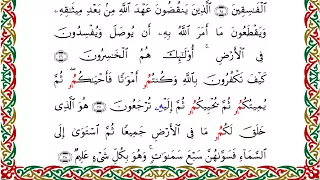 ٱلۡفَٰسِقِينَ ٢٦ ٱلَّذِينَ يَنقُضُونَ عَهۡدَ ٱللَّهِ مِنۢ بَعۡدِ مِيثَٰقِهِۦ
وَيَقۡطَعُونَ مَآ أَمَرَ ٱللَّهُ بِهِۦٓ أَن يُوصَلَ وَيُفۡسِدُونَ
فِي ٱلۡأَرۡضِۚ أُوْلَٰٓئِكَ هُمُ ٱلۡخَٰسِرُونَ
كَيۡفَ تَكۡفُرُونَ بِٱللَّهِ وَكُنتُمُۥٓ أَمۡوَٰتٗا فَأَحۡيَٰكُمُۥۖ ثُمَّ
يُمِيتُكُمُۥ ثُمَّ يُحۡيِيكُمُۥ ثُمَّ إِلَيۡهِۦ تُرۡجَعُونَ هُوَ ٱلَّذِي
خَلَقَ لَكُمُۥ مَا فِي ٱلۡأَرۡضِ جَمِيعٗا ثُمَّ ٱسۡتَوَىٰٓ إِلَى
ٱلسَّمَآءِ فَسَوَّىٰهُنَّ سَبۡعَ سَمَٰوَٰتٖۚ وَهُوَ بِكُلِّ شَيۡءٍ عَلِيمٞ